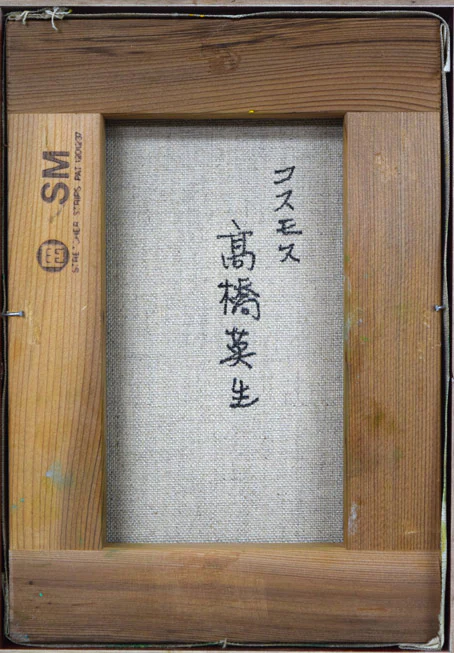 コスモス
髙橋英生
SM
STRETCHER STRIPS PAT.1201237